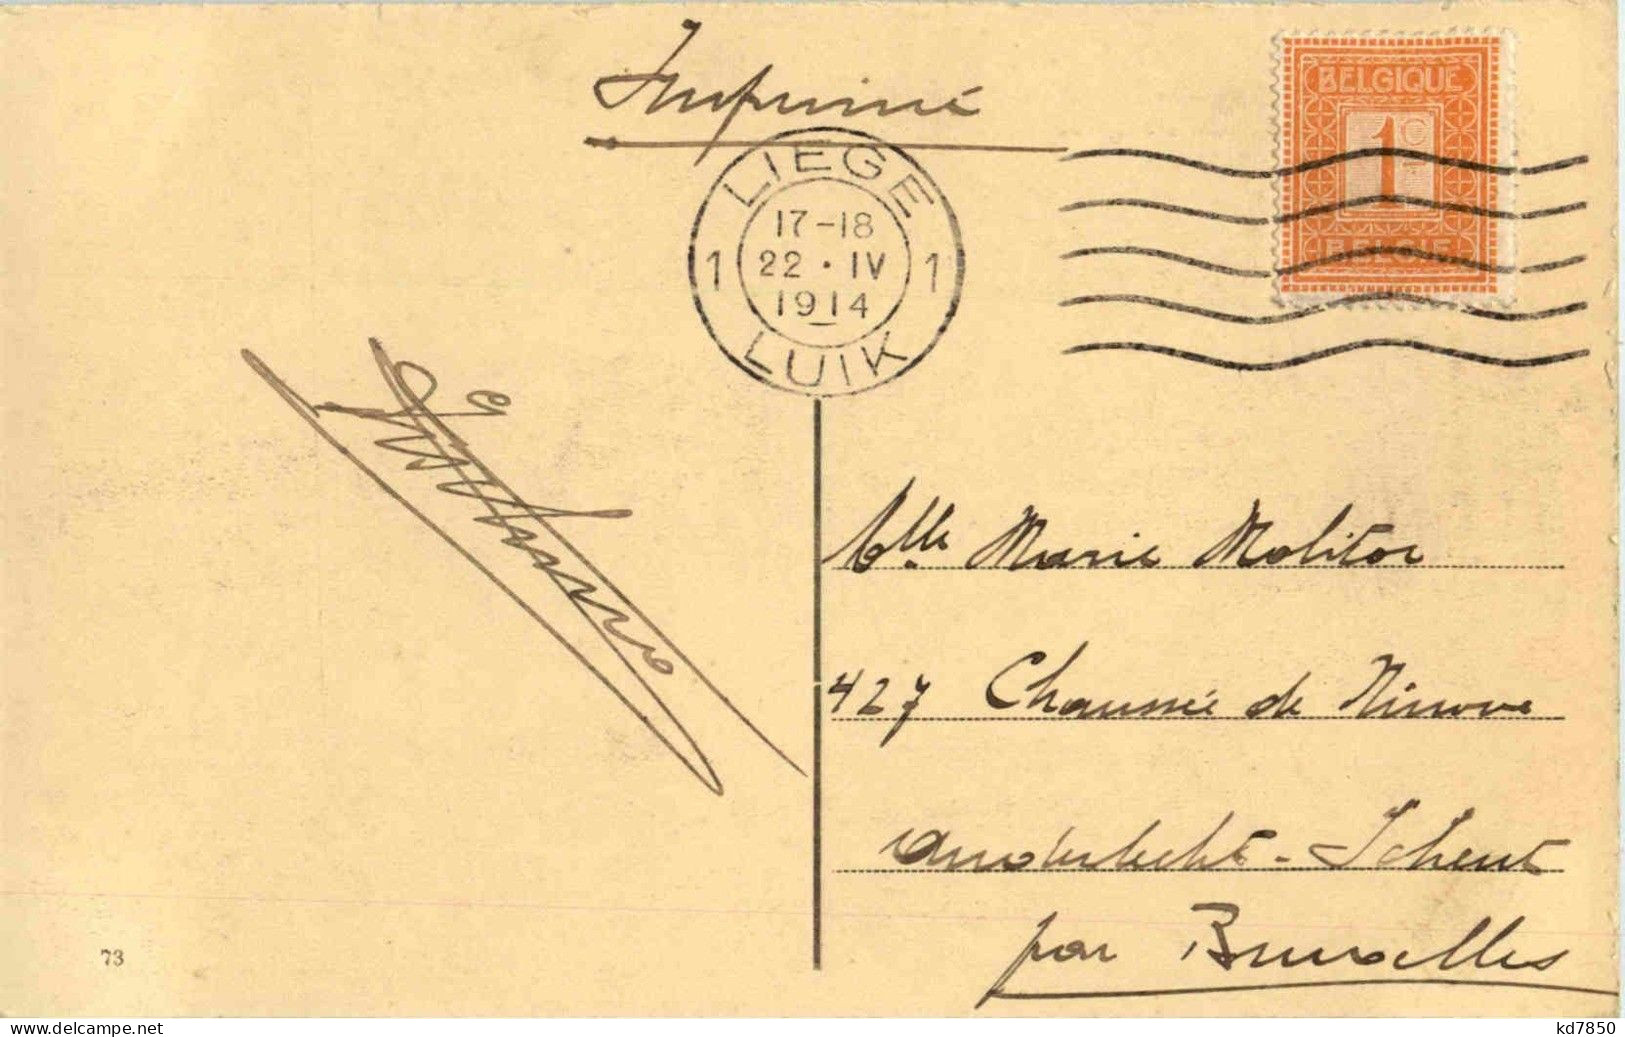 Imprimé
BELGIQUE
1
BELGIE
LIEGE
17-18
1 22 · IV 1
1914
LUIK
Mlle Marie Molitor
427 Chaussée de Ninove
Anderlecht-Scheut
par Bruxelles
73
Website: delcampe.net
kd7850